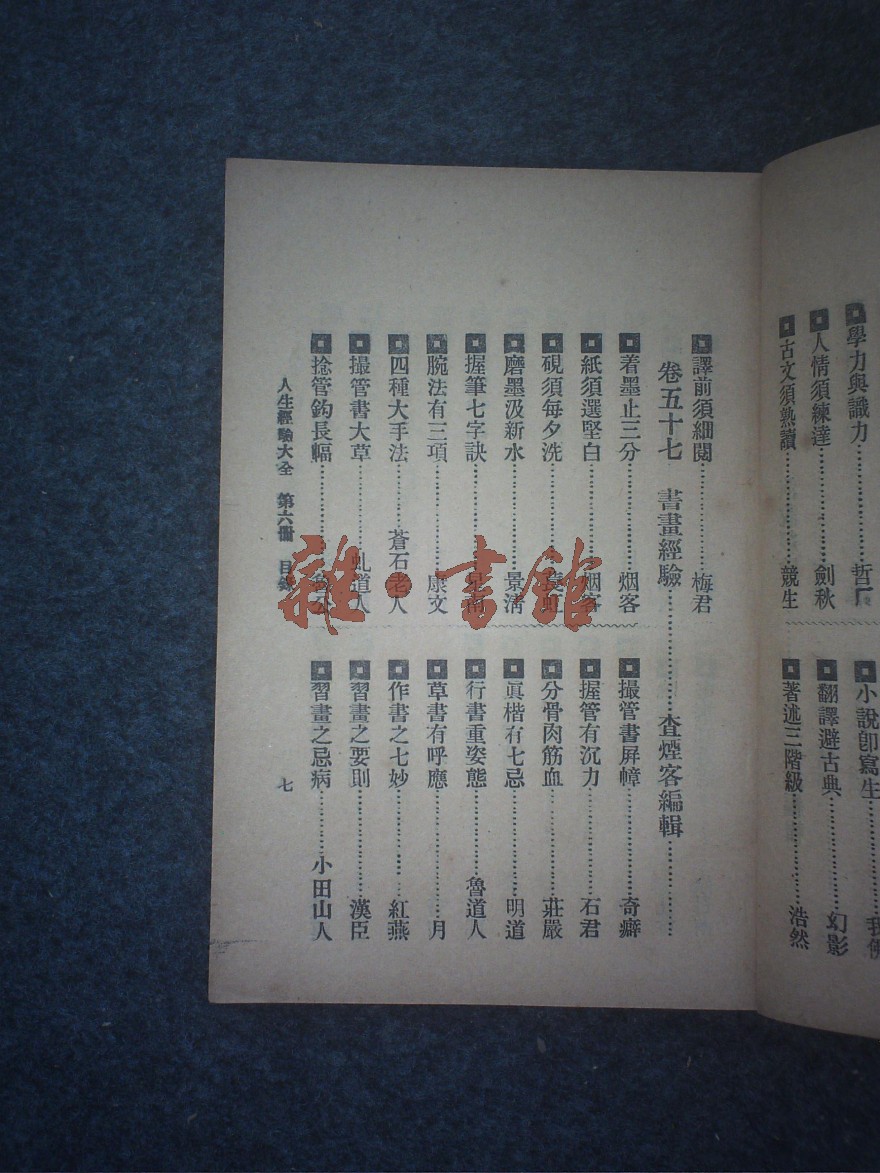 學力與識力……哲厂
人情須練達……劍秋
古文須熟讀……競生
小說卽寫生……我佛
翻譯避古典……幻影
著述三階級……浩然
譯前須細閱……梅君
卷五十七 書畫經驗……查煙客編輯……
着墨止三分……烟客
紙須選堅白……烟客
硯須每夕洗……
磨墨汲新水……景淸
握筆七字訣……
腕法有三項……康文
四種大手法……蒼石老人
撮管書大草……虬道人
捻管鈎長幅……公
撮管書屏幛……奇癖
握管有沉力……石君
分骨肉筋血……莊嚴
眞楷有七忌……明道
行書重姿態……魯道人
草書有呼應……月
作書之七妙……紅燕
習畫之要則……漢臣
習畫之忌病……小田山人
人生經驗大全 第六冊 目錄
七
雜·書館